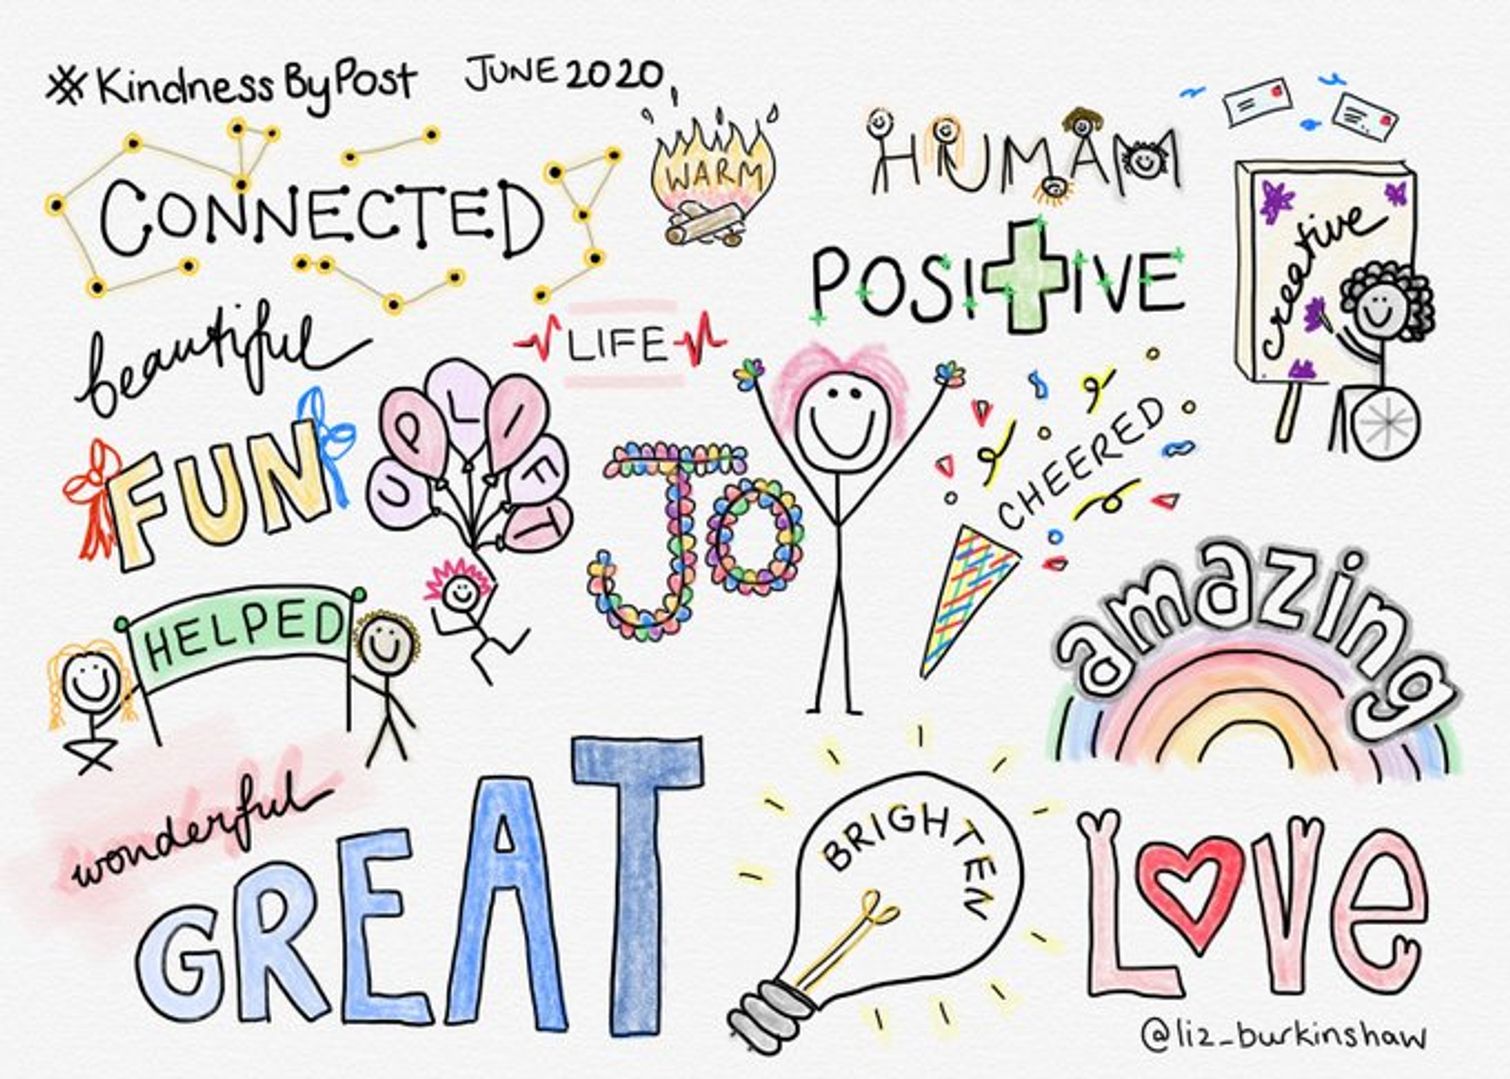 #KindnessByPost JUNE 2020
CONNECTED
WARM
HUMAN
POSITIVE
creative
beautiful
LIFE
FUN
UPLIFT
JO
CHEERED
HELPED
amazing
wonderful
GREAT
BRIGHTEN
LOVE
@liz_burkinshaw